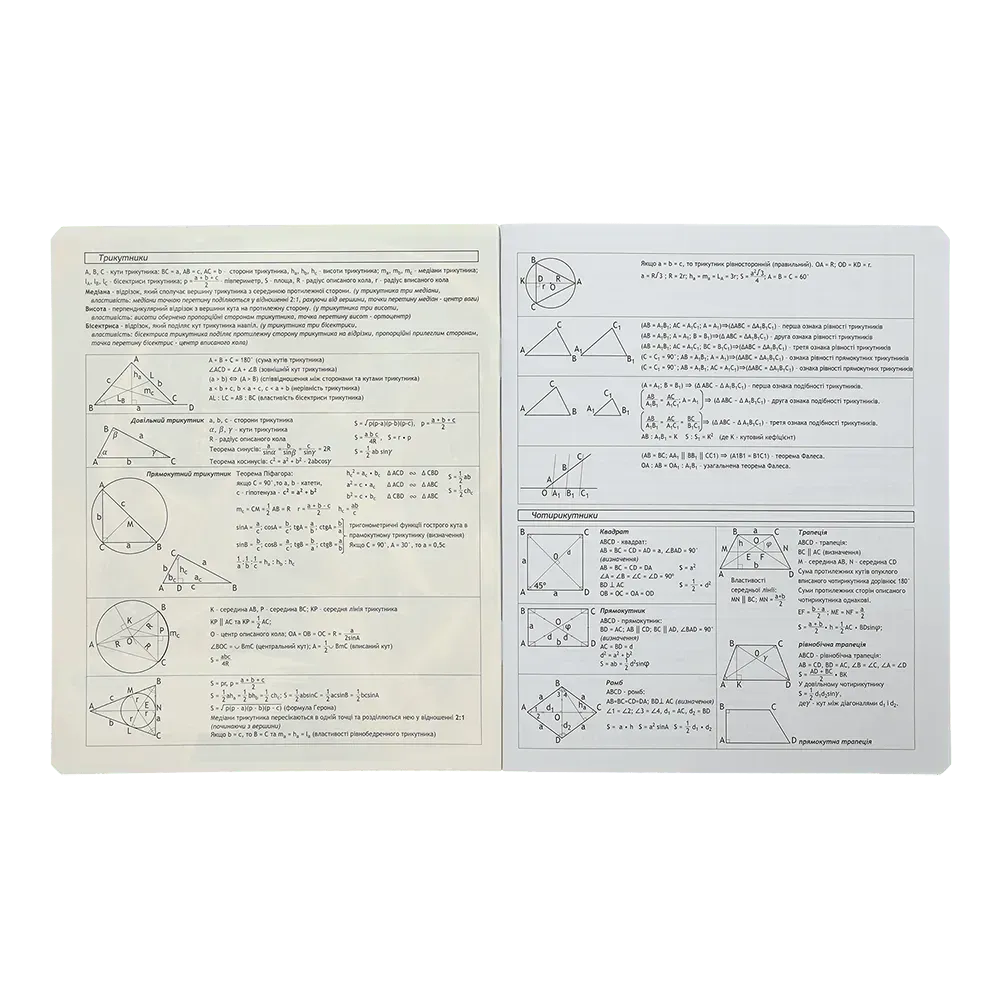 Трикутники
A, B, C - кути трикутника: BC = a, AB = c, AC = b - сторони трикутника, hₐ, h_b, h_c - висоти трикутника; mₐ, m_b, m_c - медіани трикутника;
lA, lB, lC - бісектриси трикутника; p = (a + b + c)/2 півпериметр, S - площа, R - радіус описаного кола, r - радіус вписаного кола
Медіана - відрізок, який сполучає вершину трикутника з серединою протилежної сторони. (у трикутника три медіани,
властивість: медіани точкою перетину поділяються у відношенні 2:1, рахуючи від вершини, точки перетину медіан - центр ваги)
Висота - перпендикулярний відрізок з вершини кута на протилежну сторону. (у трикутника три висоти,
властивість: висоти обернено пропорційні сторонам трикутника, точка перетину висот - ортоцентр)
Бісектриса - відрізок, який поділяє кут трикутника навпіл. (у трикутника три бісектриси,
властивість: бісектриса трикутника поділяє протилежну сторону трикутника на відрізки, пропорційні прилеглим сторонам,
точка перетину бісектрис - центр вписаного кола)
A + B + C = 180° (сума кутів трикутника)
∠ACD = ∠A + ∠B (зовнішній кут трикутника)
(a > b) ⇔ (A > B) (співвідношення між сторонами та кутами трикутника)
a < b + c, b < a + c, c < a + b (нерівність трикутника)
AL : LC = AB : BC (властивість бісектриси трикутника)
Довільний трикутник a, b, c - сторони трикутника
α, β, γ - кути трикутника
R - радіус описаного кола
Теорема синусів: a/sinα = b/sinβ = c/sinγ = 2R
Теорема косинусів: c² = a² + b² - 2abcosγ
S = √p(p-a)(p-b)(p-c), p = (a + b + c)/2
S = abc/4R, S = r • p
S = 1/2 ab sinγ
Прямокутний трикутник Теорема Піфагора:
якщо C = 90°, то a, b - катети,
c - гіпотенуза - c² = a² + b²
h_c² = a_c • b_c Δ ACD ∾ Δ CBD
a² = c • a_c Δ ACD ∾ Δ ABC
b² = c • b_c Δ CBD ∾ Δ ABC
S = 1/2 ab
S = 1/2 ch_c
m_c = CM = 1/2 AB = R r = (a + b - c)/2 h_c = ab/c
sinA = a/c; cosA = b/c; tgA = a/b; ctgA = b/a
sinB = b/c; cosB = a/c; tgB = b/a; ctgB = a/b
тригонометричні функції гострого кута в
прямокутному трикутнику (визначення)
Якщо C = 90°, A = 30°, то a = 0,5c
1/a : 1/b : 1/c = hₐ : h_b : h_c
K - середина AB, P - середина BC; KP - середня лінія трикутника
KP || AC та KP = 1/2 AC;
O - центр описаного кола; OA = OB = OC = R = a/2sinA
∠BOC = ∪ BmC (центральний кут); A = 1/2 ∪ BmC (вписаний кут)
S = abc/4R
S = pr, p = (a + b + c)/2
S = 1/2 ahₐ = 1/2 bh_b = 1/2 ch_c; S = 1/2 absinC = 1/2 acsinB = 1/2 bcsinA
S = √p(p - a)(p - b)(p - c) (формула Герона)
Медіани трикутника пересікаються в одній точці та розділяються нею у відношенні 2:1
(починаючи з вершини)
Якщо b = c, то B = C та mₐ = hₐ = lₐ (властивості рівнобедренного трикутника)
Якщо a = b = c, то трикутник рівносторонній (правильний). OA = R; OD = KD = r.
a = R√3 ; R = 2r; hₐ = mₐ = Lₐ = 3r; S = a²√3/4; A = B = C = 60°
(AB = A₁B₁; AC = A₁C₁; A = A₁)⇒(ΔABC = ΔA₁B₁C₁) - перша ознака рівності трикутників
(AB = A₁B₁; A = A₁; B = B₁)⇒(Δ ABC = ΔA₁B₁C₁) - друга ознака рівності трикутників
(AB = A₁B₁; AC = A₁C₁; BC = B₁C₁)⇒(ΔABC = ΔA₁B₁C₁) - третя ознака рівності трикутників
(C = C₁ = 90°; AB = A₁B₁; A = A₁)⇒(ΔABC = ΔA₁B₁C₁) - ознака рівності прямокутних трикутників
(C = C₁ = 90°; AB = A₁B₁; AC = A₁C₁)⇒(ΔABC = ΔA₁B₁C₁) - ознака рівності прямокутних трикутників
(A = A₁; B = B₁) ⇒ (Δ ABC ~ Δ A₁B₁C₁) - перша ознака подібності трикутників.
(AB/A₁B₁ = AC/A₁C₁; A = A₁) ⇒ (Δ ABC ~ Δ A₁B₁C₁) - друга ознака подібності трикутників.
(AB/A₁B₁ = AC/A₁C₁ = BC/B₁C₁) ⇒ (Δ ABC ~ Δ A₁B₁C₁) - третя ознака подібності трикутників.
AB : A₁B₁ = K S : S₁ = K² (де K - кутовий кефіцієнт)
(AB = BC; AA₁ || BB₁ || CC1) ⇒ (A1B1 = B1C1) - теорема Фалеса.
OA : AB = OA₁ : A₁B₁ - узагальнена теорема Фалеса.
Чотирикутники
Квадрат
ABCD - квадрат:
AB = BC = CD = AD = a, ∠BAD = 90°
(визначення)
AB = BC = CD = DA S = a²
∠A = ∠B = ∠C = ∠D = 90°
BD ⊥ AC S = 1/2 • d²
OB = OC = OA = OD
45°
Прямокутник
ABCD - прямокутник:
BD = AC; AB || CD; BC || AD, ∠BAD = 90°
(визначення)
AC = BD = d
d² = a² + b²
S = ab = 1/2 d²sinφ
Ромб
ABCD - ромб:
AB=BC=CD=DA; BD⊥ AC (визначення)
∠1 = ∠2; ∠3 = ∠4, d₁ = AC, d₂ = BD
S = a • h S = a² sinA S = 1/2 d₁ • d₂
Властивості
середньої лінії:
MN || BC; MN = (a+b)/2
Трапеція
ABCD - трапеція:
BC || AC (визначення)
M - середина AB, N - середина CD
Сума протилежних кутів опуклого
вписаного чотирикутника дорівнює 180°
Суми протилежних сторін описаного
чотирикутника однакові.
EF = (b - a)/2 ; ME = NF = a/2
S = (a + b)/2 • h = 1/2 AC • BDsinφ;
рівнобічна трапеція
ABCD - рівнобічна трапеція:
AB = CD, BD = AC, ∠B = ∠C, ∠A = ∠D
S = (AD + BC)/2 • BK
У довільному чотирикутнику
S = 1/2 d₁d₂sinγ,
деγ - кут між діагоналями d₁ і d₂.
прямокутна трапеція